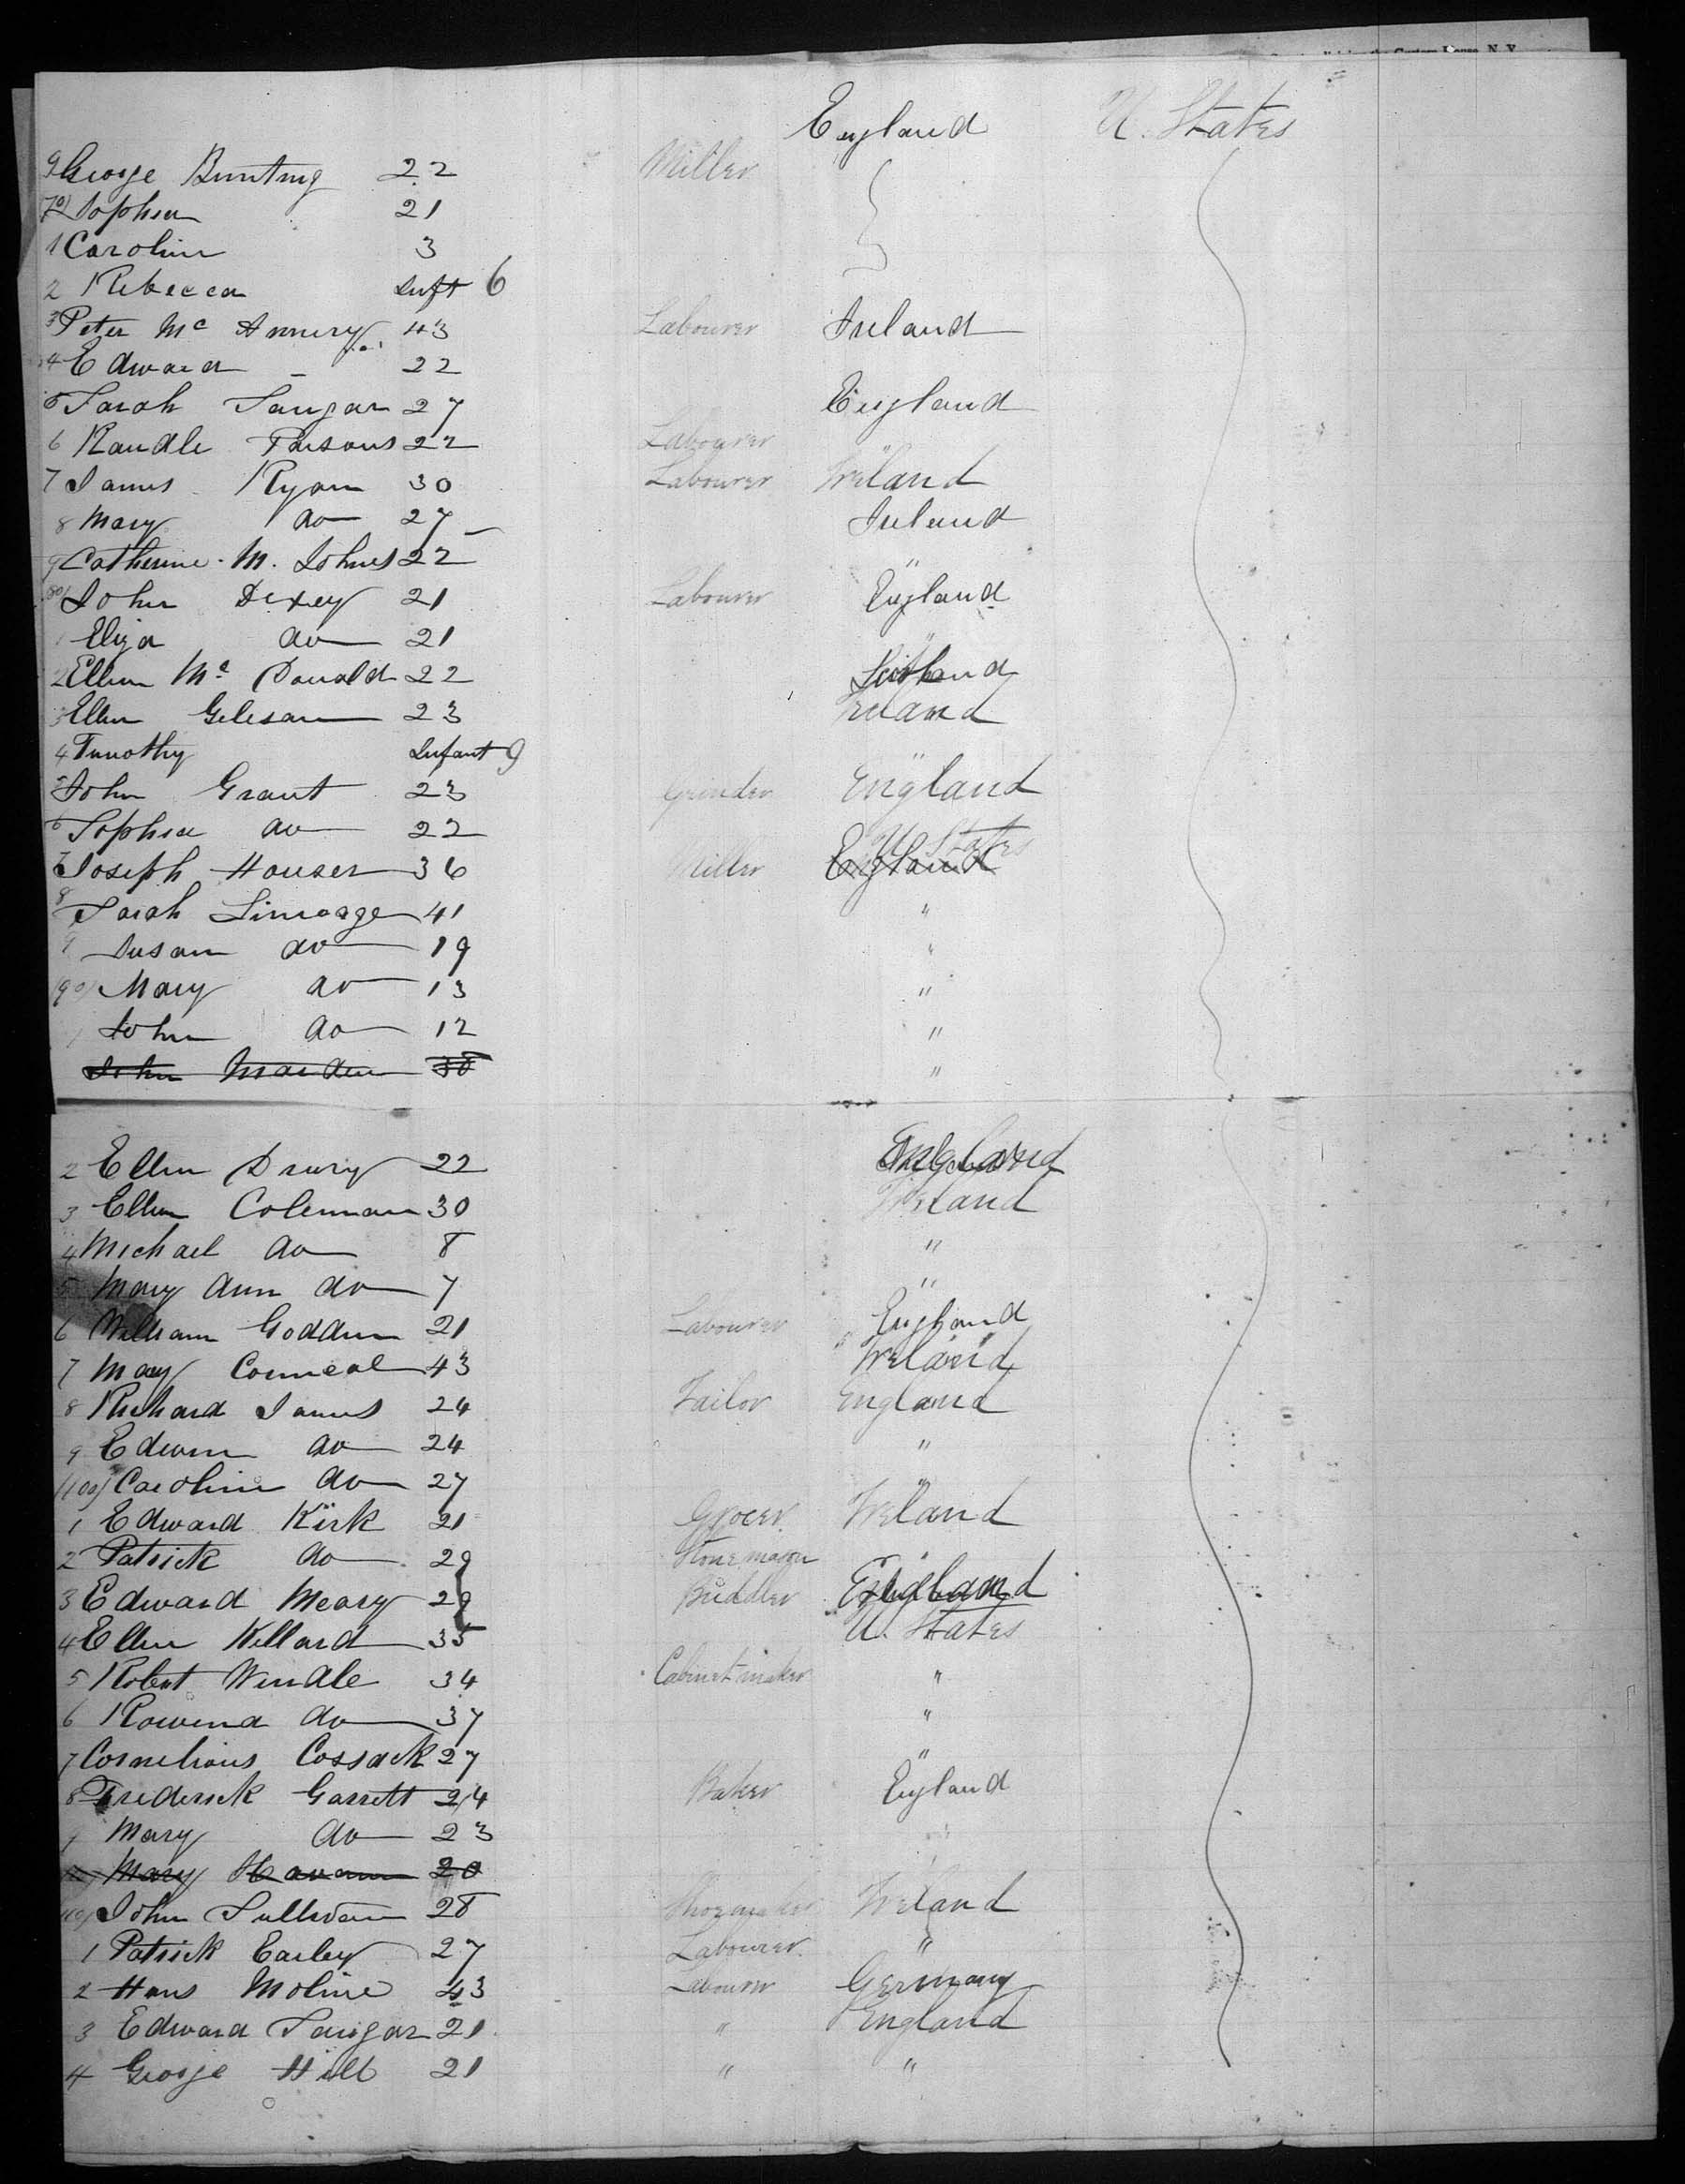 Custom House, N. Y.
England U. States
9 George Bunting 22 Miller
70 Sophia 21
1 Caroline 3
2 Rebecca Inft 6
3 Peter Mc Annery 43 Labourer Ireland
4 Edward - 22
5 Sarah Sangar 27 England
6 Randle Parsons 22 Labourer "
7 James Ryan 30 Labourer Ireland
8 Mary do 27 Ireland
9 Catherine M. Johnes 22 "
80 John Dexey 21 Labourer England
1 Eliza do 21 "
2 Ellen Mc Donald 22
3 Ellen Gelesan 23 Ireland
4 Timothy Infant 9 "
5 John Grant 23 Grinder England
6 Sophia do 22 "
7 Joseph Houser 36 Miller U States England
8 Sarah 41 "
9 Susan do 19 "
90 Mary do 13 "
1 John do 12 "
John Marden 38 "
2 Ellen Drury 22 England
3 Ellen Coleman 30 Ireland
4 Michael do 8 "
5 Mary Ann do 7 "
6 William Godden 21 Labourer England
7 Mary Conneal 43 Ireland
8 Richard James 24 Tailor England
9 Edwin do 24 "
100 Caroline do 27 "
1 Edward Kirk 21 Grocer Ireland
2 Patrick do 29 Stonemason "
3 Edward Meary 29 Buddler
4 Ellen Killard 35 U. States
5 Robert Wendle 34 Cabinet maker "
6 Rowena do 37 "
7 Cornelious Cossack 27 "
8 Frederick Garrett 24 Baker England
9 Mary do 23 "
Mary 20
110 John Sullivan 28 Shoemaker Ireland
1 Patrick Earley 27 Labourer "
2 Hans Moline 43 Labourer Germany
3 Edward Sangar 21 " England
4 George Hill 21 " "